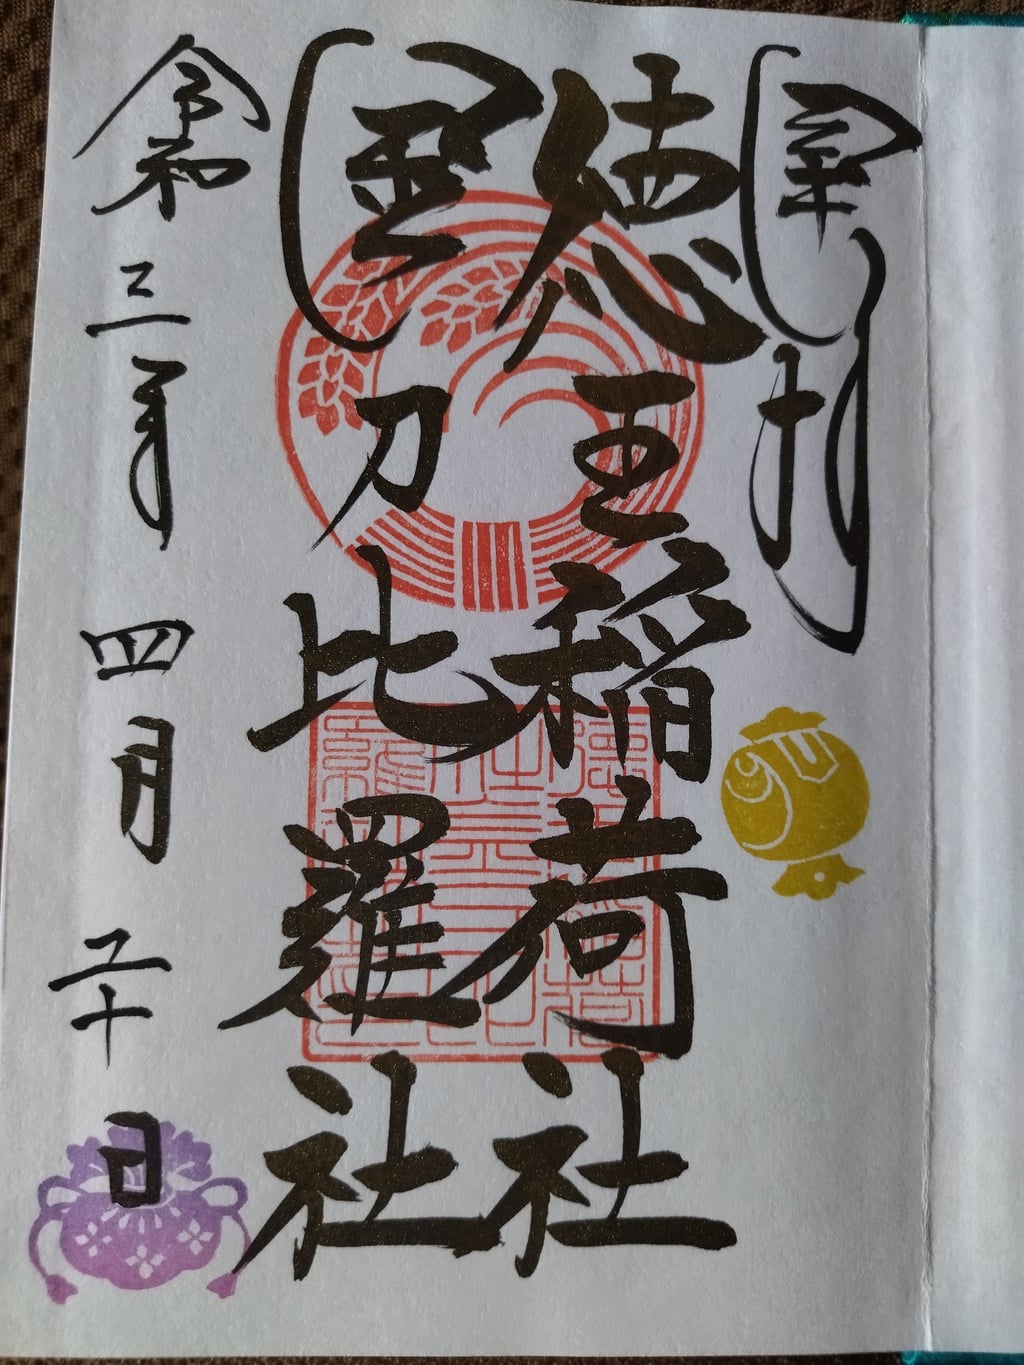 奉拝
徳王稲荷社
金刀比羅社
令和三年四月二十日